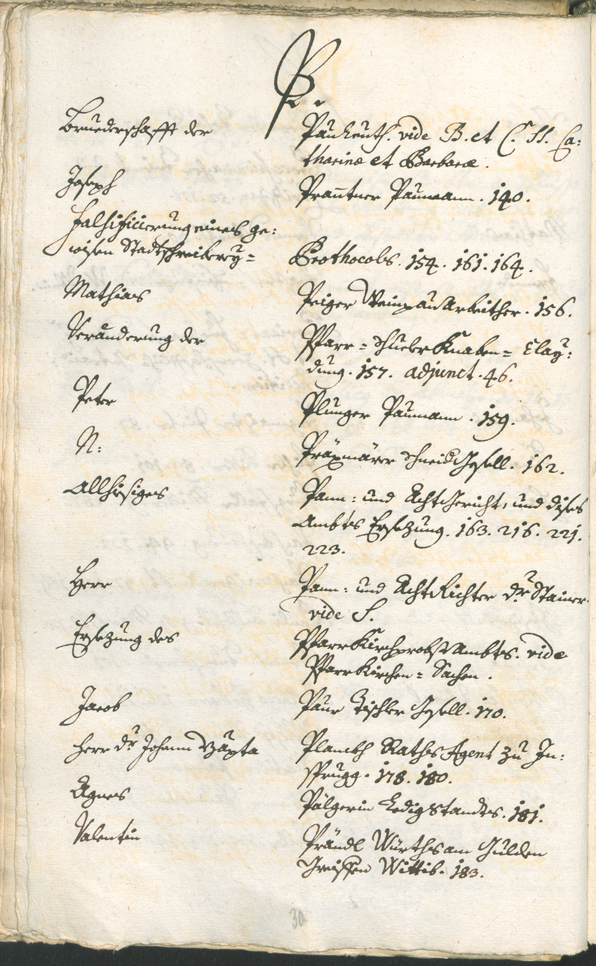 P.
Bruederschafft der Päckenth. vide B. et C. SS. Ca:
tharinæ et Barbaræ.
Joseph Prantner Paumann. 140.
Falsificierung eines ge:
wisen Stadtschreiberey= Prothocols. 154. 161. 164.
Mathias Peiger Weinpauarbeither. 156.
Veränderung der Pfarr= Schueler Knaben= Clay:
dung. 157. adjunct. 46.
Peter Plunger Paumann. 159.
N: Präxmärer Schneid Gsell. 162.
Allhiesiges Pann: und Acht Gericht, und dises
Ambts Ersezung. 163. 216. 221.
223.
Herr Pann: und Acht Richter Dr Stainer
vide S.
Ersezung des Pfarr Kirchprobst Ambts. vide
Pfarrkirchen= Sachen.
Jacob Paur Tischler Gsell. 170.
Herr Dr Johann Bapta Planckh Raths Agent zu In:
sprugg. 178. 180.
Agnes Pälgerin Ledig Standes. 181.
Valentin Prändl Würths am Gulden
Greiffen Wittib. 183.
30